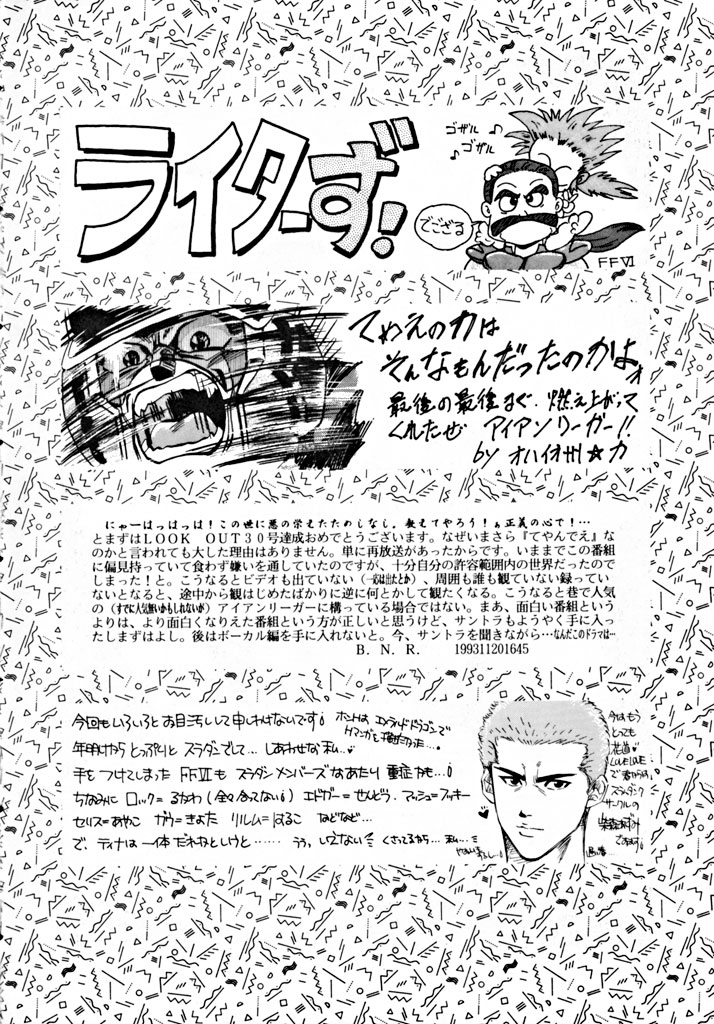 ライターず!
ゴザル♪
♪ゴザル
でござる
FFVI
てめえの力は
そんなもんだったのかよォ
最後の最後まで、燃え上がって
くれたぜ アイアンリーガー!!
by オハイオ州☆力
にゃーはっはっは!この世に悪の栄えたためしなし。教えてやろう!ぁ正義の心で!…
とまずはLOOK OUT30号達成おめでとうございます。なぜいまさら『てやんでえ』な
のかと言われても大した理由はありません。単に再放送があったからです。いままでこの番組
に偏見持っていて食わず嫌いを通していたのですが、十分自分の許容範囲内の世界だったので
しまった!と。こうなるとビデオも出ていない(一応昔出たとか)、周囲も誰も観ていない録ってい
ないとなると、途中から観はじめたばかりに逆に何とかして観たくなる。こうなると巷で人気
の(すでに人気無いかもしれないが)アイアンリーガーに構っている場合ではない。まあ、面白い番組という
よりは、より面白くなりえた番組という方が正しいと思うけど、サントラもようやく手に入っ
たしまずはよし。後はボーカル編を手に入れないと。今、サントラを聞きながら…なんだこのドラマは…
B. N. R. 199311201645
今回もいろいろとお目汚しして申しわけないです!ホントは エメラルドドラゴンで
年明けから とっぷりと スラダンでして… しあわせな 私…
手をつけてしまった FFVIも スラダンメンバーズなあたり 重症かも…!
ちなみに ロック=るかわ(全々合ってない!) エドガー=せんどう、マッシュ=フッキー
セリス=あやこ ガウ=きよた リルム=はるこ などなど…
で、ティナは一体だれなというと…… うぅ、いえない くさってるから…私…
今はもう
とっても
花道
LOVELOVE
で 君からは
スラムダンク
サークルの